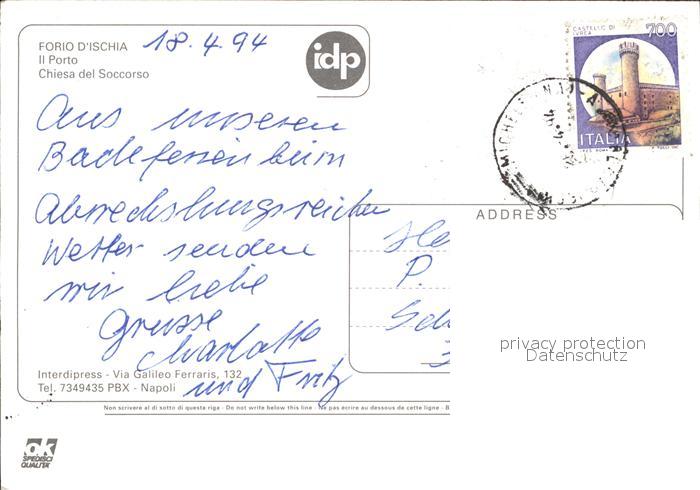 FORIO D'ISCHIA
Il Porto
Chiesa del Soccorso
18.4.94
idp
CASTELLO DI
IVREA
700
ITALIA
Aus unseren
Badeferien beim
Abwechslungsreichen
Wetter senden
wir liebe
Grüsse
Charlotte
und Fritz
ADDRESS
P.
privacy protection
Datenschutz
Interdipress - Via Galileo Ferraris, 132
Tel. 7349435 PBX - Napoli
Non scrivere al di sotto di questa riga - Do not write below this line - Ne pas ecrire au dessous de cette ligne - B
ok
SPEDISCI
QUALITÀ